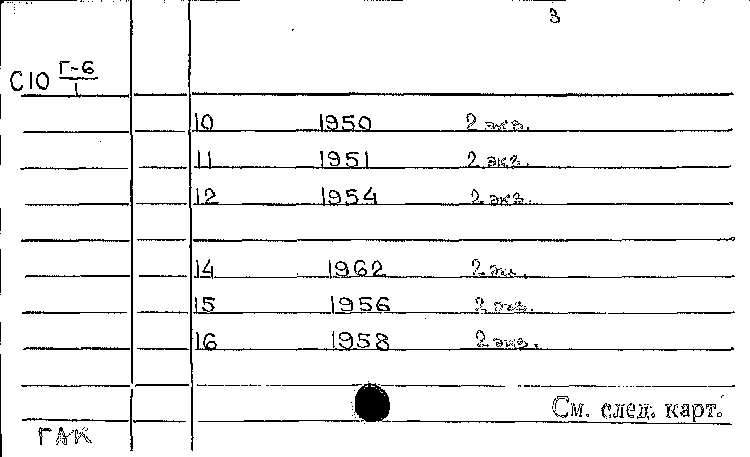 3
С10 Г-6/1
10 1950 2 экз.
11 1951 2 экз.
12 1954 2 экз.
14 1962 2 эк.
15 1956 2 экз.
16 1958 2 экз.
См. след. карт.
ГАК